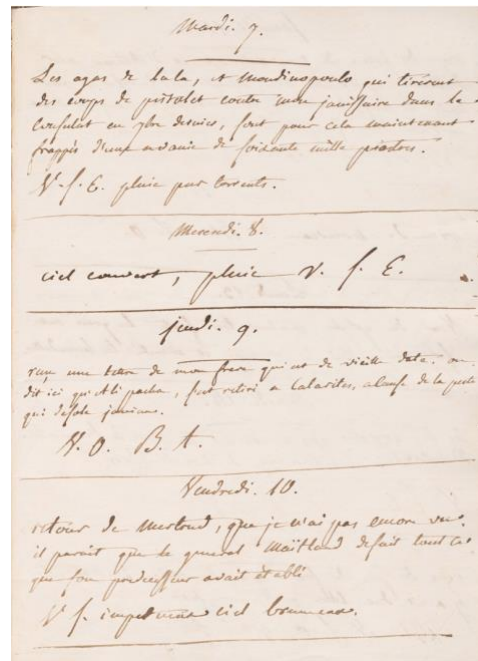 Mardi. 7.
Les agas de Lala, et Mondinopoulo qui tirèrent
des coups de pistolet contre mon janissaire dans le
Consulat en 9bre dernier, sont pour cela maintenant
frappés d'une avanie de soixante mille piastres.
Vt. S. E. pluie par torrents.
Mercredi. 8.
ciel couvert, pluie V. S. E.
jeudi. 9.
reçu une lettre de mon frere qui est de vieille date. on
dit ici qu'Ali pacha, s'est retiré a Calarites, a cause de la peste
qui désole janina.
V. O. B. t.
Vendredi. 10.
retour de Mertrud, que je n'ai pas encore vu.
il parait que le general Maïtland defait tout ce
que son predecesseur avait établi
Vt S. impetueux ciel brumeux.